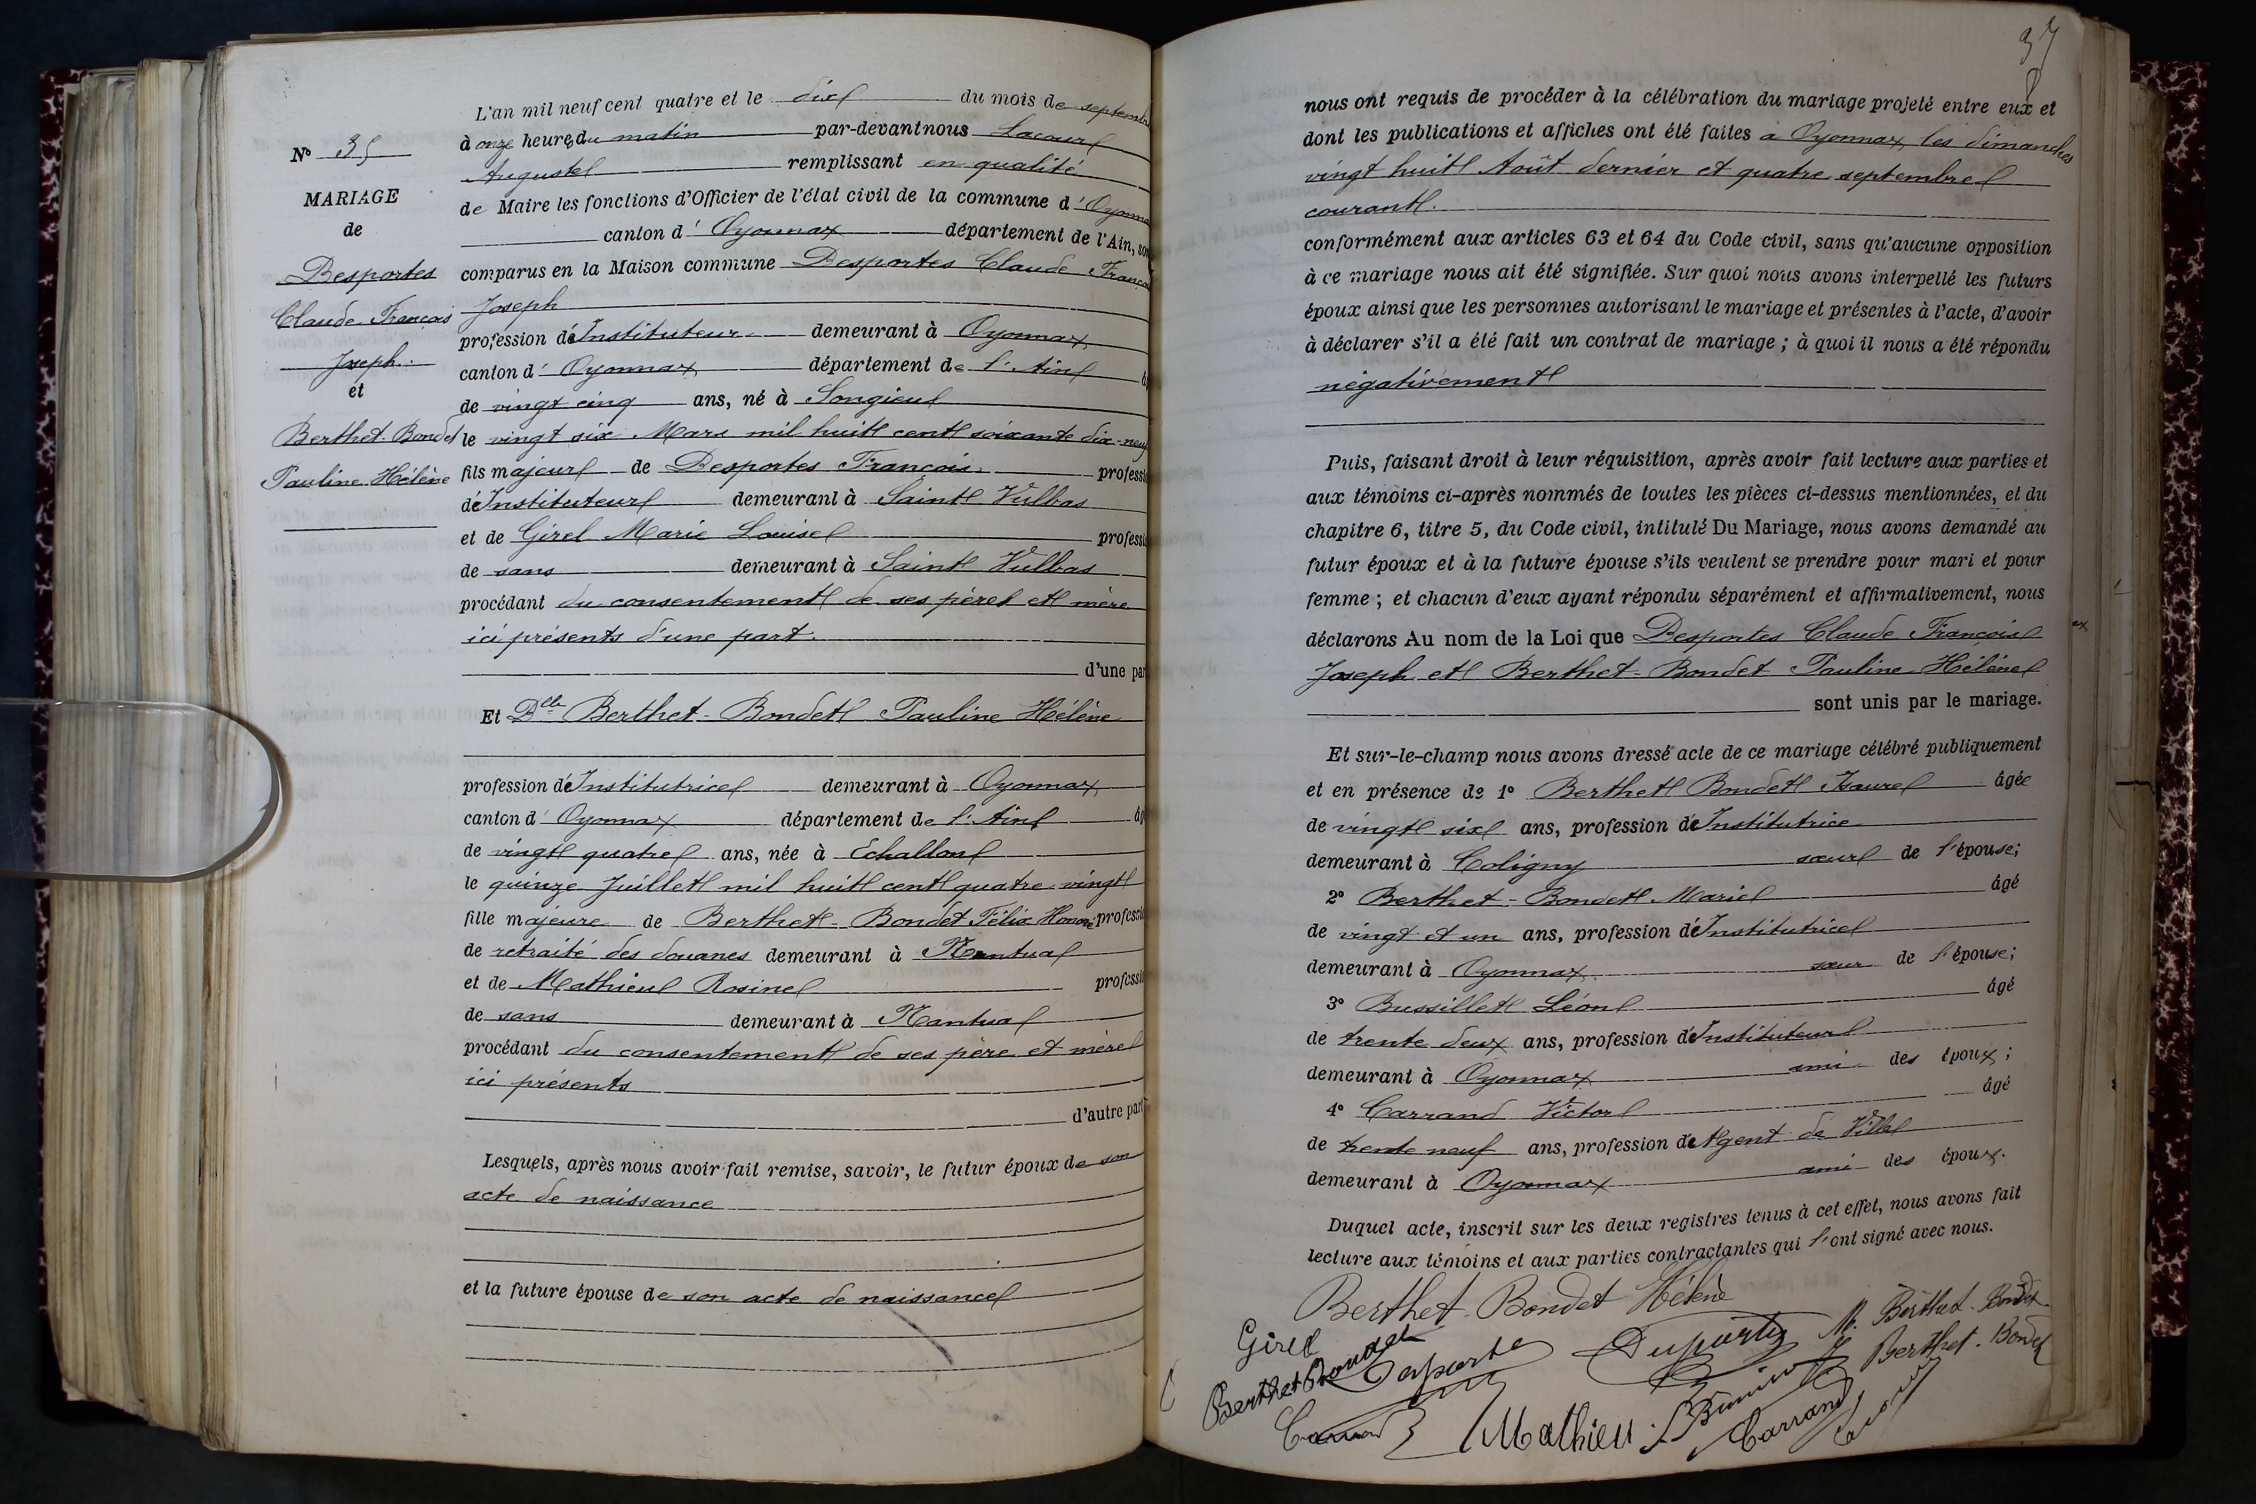 L'an mil neuf cent quatre et le dix du mois de septembre
à onze heures du matin par-devant nous Lacour
Auguste remplissant en qualité
de Maire les fonctions d'Officier de l'état civil de la commune d'Oyonnax
canton d'Oyonnax département de l'Ain, sont
comparus en la Maison commune Desportes Claude François
Joseph
profession d'Instituteur demeurant à Oyonnax
canton d'Oyonnax département de l'Ain
de vingt cinq ans, né à Songieu
le vingt six Mars mil huit cent soixante dix-neuf
fils majeur de Desportes François professi
d'Instituteur demeurant à Saint Vulbas
et de Girel Marie Louise professi
de sans demeurant à Saint Vulbas
procédant du consentement de ses père et mère
ici présents d'une part.
d'une par
Et Dlle Berthet-Bondet Pauline Hélène
profession d'Institutrice demeurant à Oyonnax
canton d'Oyonnax département de l'Ain âg
de vingt quatre ans, née à Echallon
le quinze Juillet mil huit cent quatre-vingt
fille majeure de Berthet-Bondet Félix Honoré professi
de retraité des douanes demeurant à Nantua
et de Mathieu Rosine professi
de sans demeurant à Nantua
procédant du consentement de ses père et mère
ici présents
d'autre part
Lesquels, après nous avoir fait remise, savoir, le futur époux de son
acte de naissance
et la future épouse de son acte de naissance
N° 35
MARIAGE
de
Desportes
Claude François
Joseph
et
Berthet-Bondet
Pauline Hélène
37
nous ont requis de procéder à la célébration du mariage projeté entre eux et
dont les publications et affiches ont été faites à Oyonnax, les dimanches
vingt huit Août dernier et quatre septembre
courant.
conformément aux articles 63 et 64 du Code civil, sans qu'aucune opposition
à ce mariage nous ait été signifiée. Sur quoi nous avons interpellé les futurs
époux ainsi que les personnes autorisant le mariage et présentes à l'acte, d'avoir
à déclarer s'il a été fait un contrat de mariage ; à quoi il nous a été répondu
négativement
Puis, faisant droit à leur réquisition, après avoir fait lecture aux parties et
aux témoins ci-après nommés de toutes les pièces ci-dessus mentionnées, et du
chapitre 6, titre 5, du Code civil, intitulé Du Mariage, nous avons demandé au
futur époux et à la future épouse s'ils veulent se prendre pour mari et pour
femme ; et chacun d'eux ayant répondu séparément et affirmativement, nous
déclarons Au nom de la Loi que Desportes Claude François
Joseph et Berthet-Bondet Pauline Hélène
sont unis par le mariage.
Et sur-le-champ nous avons dressé acte de ce mariage célébré publiquement
et en présence de 1° Berthet Bondet Isaure âgée
de vingt six ans, profession d'Institutrice
demeurant à Coligny sœur de l'épouse;
2° Berthet-Bondet Marie âgé
de vingt et un ans, profession d'Institutrice
demeurant à Oyonnax sœur de l'épouse;
3° Bussillet Léon âgé
de trente deux ans, profession d'Instituteur
demeurant à Oyonnax ami des époux;
4° Carrand Victor âgé
de trente neuf ans, profession d'Agent de Ville
demeurant à Oyonnax ami des époux.
Duquel acte, inscrit sur les deux registres tenus à cet effet, nous avons fait
lecture aux témoins et aux parties contractantes qui l'ont signé avec nous.
Berthet-Bondet Hélène
M. Berthet-Bondet
Girel
Desportes
Berthet-Bondet
Berthet Bondet
Mathieu
Carrand